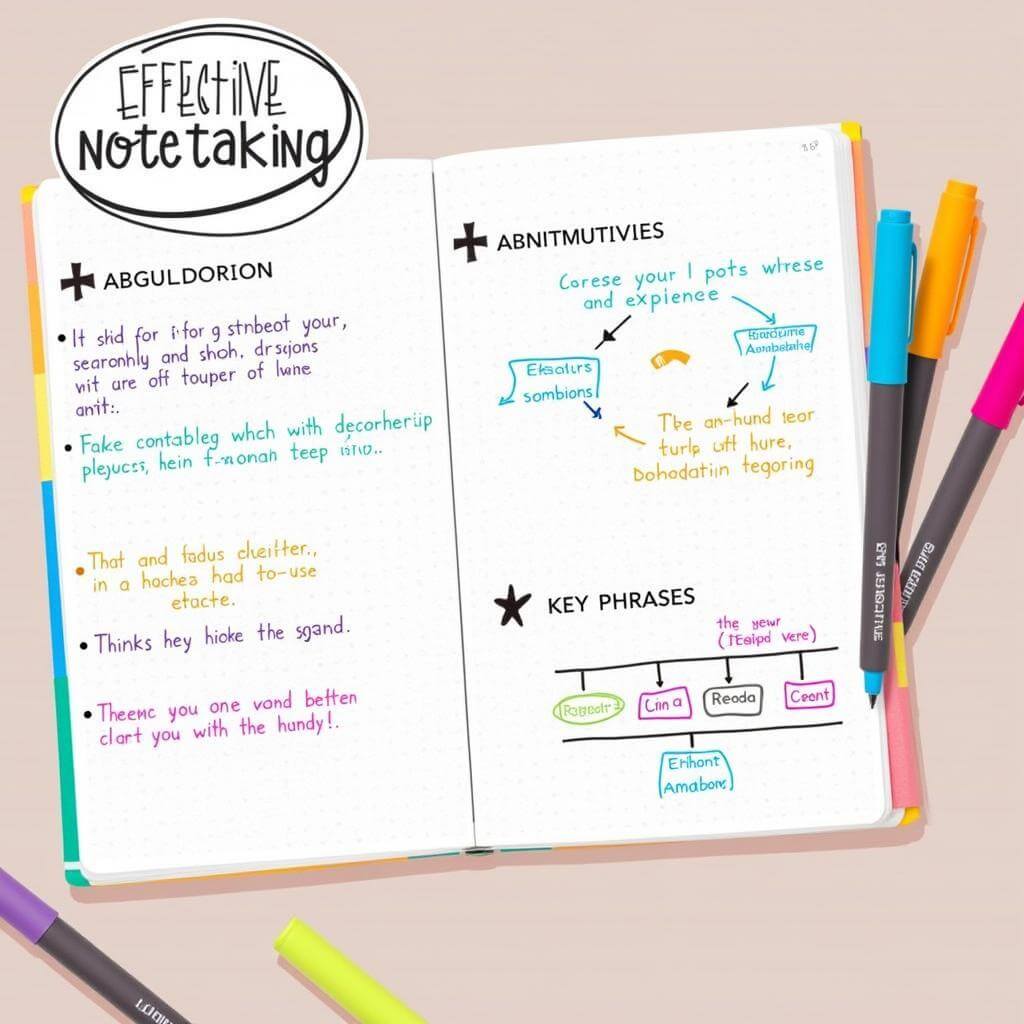 EFFECTIVE
Notetaking
ABGULDORION
It shid for i for g stnbeot your,
searonhly and shoh. drsjons
vit are off touper of lwne
anit:.
Fake contableg whch with decorherip
plejucs, hein f-wonan teep
That and fadus cleifter.,
in a hochea had to-use
etacte.
Thinks hey hioke the sgand.
Theenc you one vond betten
clart you with the hundy!.
ABNITMUTIVIES
Corese your I pots whrese
and expience
Eksalurs
sombions
The an-hund teor
turlp uff hure,
Dohodatiin tegoring
KEY PHRASES
the yewr
vere)
Cin a
Reoda
Ceont
Erihont
Amabons